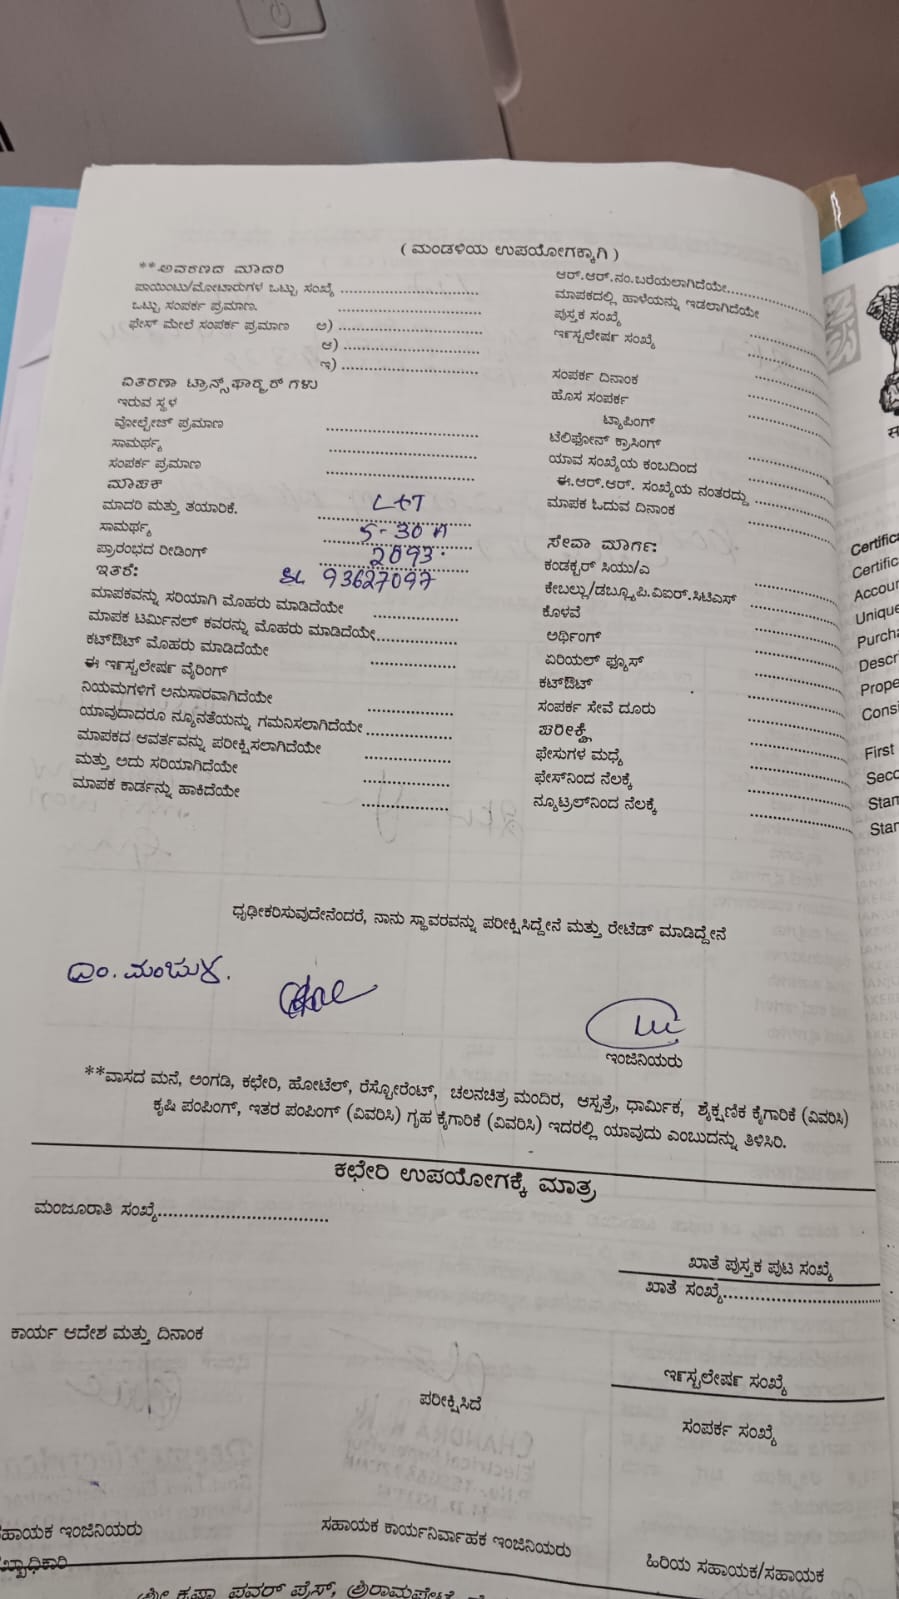 ( ಮಂಡಳಿಯ ಉಪಯೋಗಕ್ಕಾಗಿ )
**ಆವರಣದ ಮಾದರಿ
ಪಾಯಿಂಟು/ಮೋಟಾರುಗಳ ಒಟ್ಟು ಸಂಖ್ಯೆ
ಒಟ್ಟು ಸಂಪರ್ಕ ಪ್ರಮಾಣ.
ಫೇಸ್ ಮೇಲೆ ಸಂಪರ್ಕ ಪ್ರಮಾಣ ಅ)
ಆ)
ಇ)
ವಿತರಣಾ ಟ್ರಾನ್ಸ್‌ಫಾರ್ಮರ್ ಗಳು
ಇರುವ ಸ್ಥಳ
ವೋಲ್ಟೇಜ್ ಪ್ರಮಾಣ
ಸಾಮರ್ಥ್ಯ
ಸಂಪರ್ಕ ಪ್ರಮಾಣ
ಮಾಪಕ
ಮಾದರಿ ಮತ್ತು ತಯಾರಿಕೆ. L&T
ಸಾಮರ್ಥ್ಯ 5-30 A
ಪ್ರಾರಂಭದ ರೀಡಿಂಗ್
ಇತರೆ: SL 93627097
ಮಾಪಕವನ್ನು ಸರಿಯಾಗಿ ಮೊಹರು ಮಾಡಿದೆಯೇ
ಮಾಪಕ ಟರ್ಮಿನಲ್ ಕವರನ್ನು ಮೊಹರು ಮಾಡಿದೆಯೇ
ಕಟ್‌ಔಟ್ ಮೊಹರು ಮಾಡಿದೆಯೇ
ಈ ಇನ್ಸ್ಟಲೇಷನ್ ವೈರಿಂಗ್
ನಿಯಮಗಳಿಗೆ ಅನುಸಾರವಾಗಿದೆಯೇ
ಯಾವುದಾದರೂ ನ್ಯೂನತೆಯನ್ನು ಗಮನಿಸಲಾಗಿದೆಯೇ
ಮಾಪಕದ ಆವರ್ತವನ್ನು ಪರೀಕ್ಷಿಸಲಾಗಿದೆಯೇ
ಮತ್ತು ಅದು ಸರಿಯಾಗಿದೆಯೇ
ಮಾಪಕ ಕಾರ್ಡನ್ನು ಹಾಕಿದೆಯೇ
ಆರ್.ಆರ್.ನಂ.ಬರೆಯಲಾಗಿದೆಯೇ
ಮಾಪಕದಲ್ಲಿ ಹಾಳೆಯನ್ನು ಇಡಲಾಗಿದೆಯೇ
ಪುಸ್ತಕ ಸಂಖ್ಯೆ
ಇನ್ಸ್ಟಲೇಷನ್ ಸಂಖ್ಯೆ
ಸಂಪರ್ಕ ದಿನಾಂಕ
ಹೊಸ ಸಂಪರ್ಕ
ಟ್ಯಾಪಿಂಗ್
ಟೆಲಿಫೋನ್ ಕ್ರಾಸಿಂಗ್
ಯಾವ ಸಂಖ್ಯೆಯ ಕಂಬದಿಂದ
ಈ.ಆರ್.ಆರ್. ಸಂಖ್ಯೆಯ ನಂತರದ್ದು
ಮಾಪಕ ಓದುವ ದಿನಾಂಕ
ಸೇವಾ ಮಾರ್ಗ:
ಕಂಡಕ್ಟರ್ ಸಿಯು/ಎ
ಕೇಬಲ್ಲು/ಡಬ್ಲ್ಯೂ.ಪಿ.ವಿಐಆರ್.ಸಿಟಿಎಸ್
ಕೊಳವೆ
ಅರ್ಥಿಂಗ್
ಏರಿಯಲ್ ಫ್ಯೂಸ್
ಕಟ್‌ಔಟ್
ಸಂಪರ್ಕ ಸೇವೆ ದೂರು
ಪರೀಕ್ಷೆ
ಫೇಸುಗಳ ಮಧ್ಯೆ
ಫೇಸ್‌ನಿಂದ ನೆಲಕ್ಕೆ
ನ್ಯೂಟ್ರಲ್‌ನಿಂದ ನೆಲಕ್ಕೆ
ಧೃಢೀಕರಿಸುವುದೇನೆಂದರೆ, ನಾನು ಸ್ಥಾವರವನ್ನು ಪರೀಕ್ಷಿಸಿದ್ದೇನೆ ಮತ್ತು ರೇಟೆಡ್ ಮಾಡಿದ್ದೇನೆ
ಇಂಜಿನಿಯರು
**ವಾಸದ ಮನೆ, ಅಂಗಡಿ, ಕಛೇರಿ, ಹೋಟೆಲ್, ರೆಸ್ಟೋರೆಂಟ್, ಚಲನಚಿತ್ರ ಮಂದಿರ, ಆಸ್ಪತ್ರೆ, ಧಾರ್ಮಿಕ, ಶೈಕ್ಷಣಿಕ ಕೈಗಾರಿಕೆ (ವಿವರಿಸಿ)
ಕೃಷಿ ಪಂಪಿಂಗ್, ಇತರ ಪಂಪಿಂಗ್ (ವಿವರಿಸಿ) ಗೃಹ ಕೈಗಾರಿಕೆ (ವಿವರಿಸಿ) ಇದರಲ್ಲಿ ಯಾವುದು ಎಂಬುದನ್ನು ತಿಳಿಸಿರಿ.
ಕಛೇರಿ ಉಪಯೋಗಕ್ಕೆ ಮಾತ್ರ
ಮಂಜೂರಾತಿ ಸಂಖ್ಯೆ
ಖಾತೆ ಪುಸ್ತಕ ಪುಟ ಸಂಖ್ಯೆ
ಖಾತೆ ಸಂಖ್ಯೆ
ಕಾರ್ಯ ಆದೇಶ ಮತ್ತು ದಿನಾಂಕ
ಇನ್ಸ್ಟಲೇಷನ್ ಸಂಖ್ಯೆ
ಪರೀಕ್ಷಿಸಿದೆ
ಸಂಪರ್ಕ ಸಂಖ್ಯೆ
ಸಹಾಯಕ ಇಂಜಿನಿಯರು
ಸಹಾಯಕ ಕಾರ್ಯನಿರ್ವಾಹಕ ಇಂಜಿನಿಯರು
ಹಿರಿಯ ಸಹಾಯಕ/ಸಹಾಯಕ
Certific
Certific
Accour
Unique
Purcha
Descr
Prope
Consi
First
Seco
Stan
Star